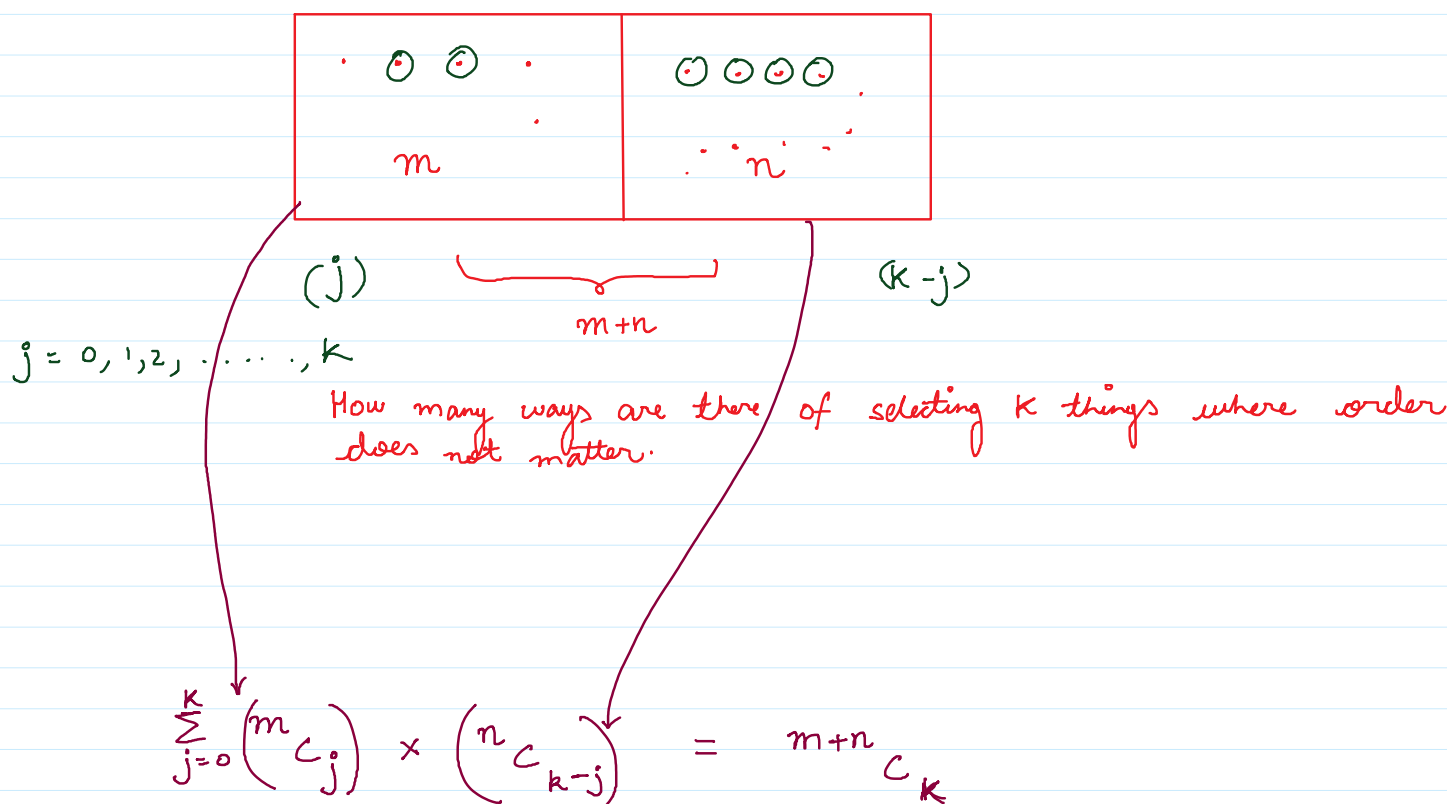 m n
(j) (k-j)
m+n
j = 0, 1, 2, ......, k
How many ways are there of selecting k things where order
does not matter.
k
∑ (ᵐC_j) × (ⁿC_{k-j}) = ᵐ⁺ⁿC_k
j=0